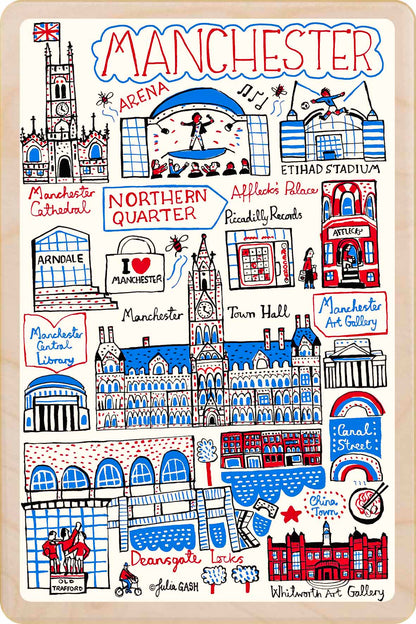 MANCHESTER
ARENA
ETIHAD STADIUM
Manchester
Cathedral
NORTHERN
QUARTER
Affleck's Palace
Piccadilly Records
AFFLECKS
ARNDALE
I
MANCHESTER
Manchester Town Hall
Manchester
Art Gallery
Manchester
Central
Library
Canal
Street
China
Town
Deansgate Locks
OLD
TRAFFORD
© Julia GASH
Whitworth Art Gallery